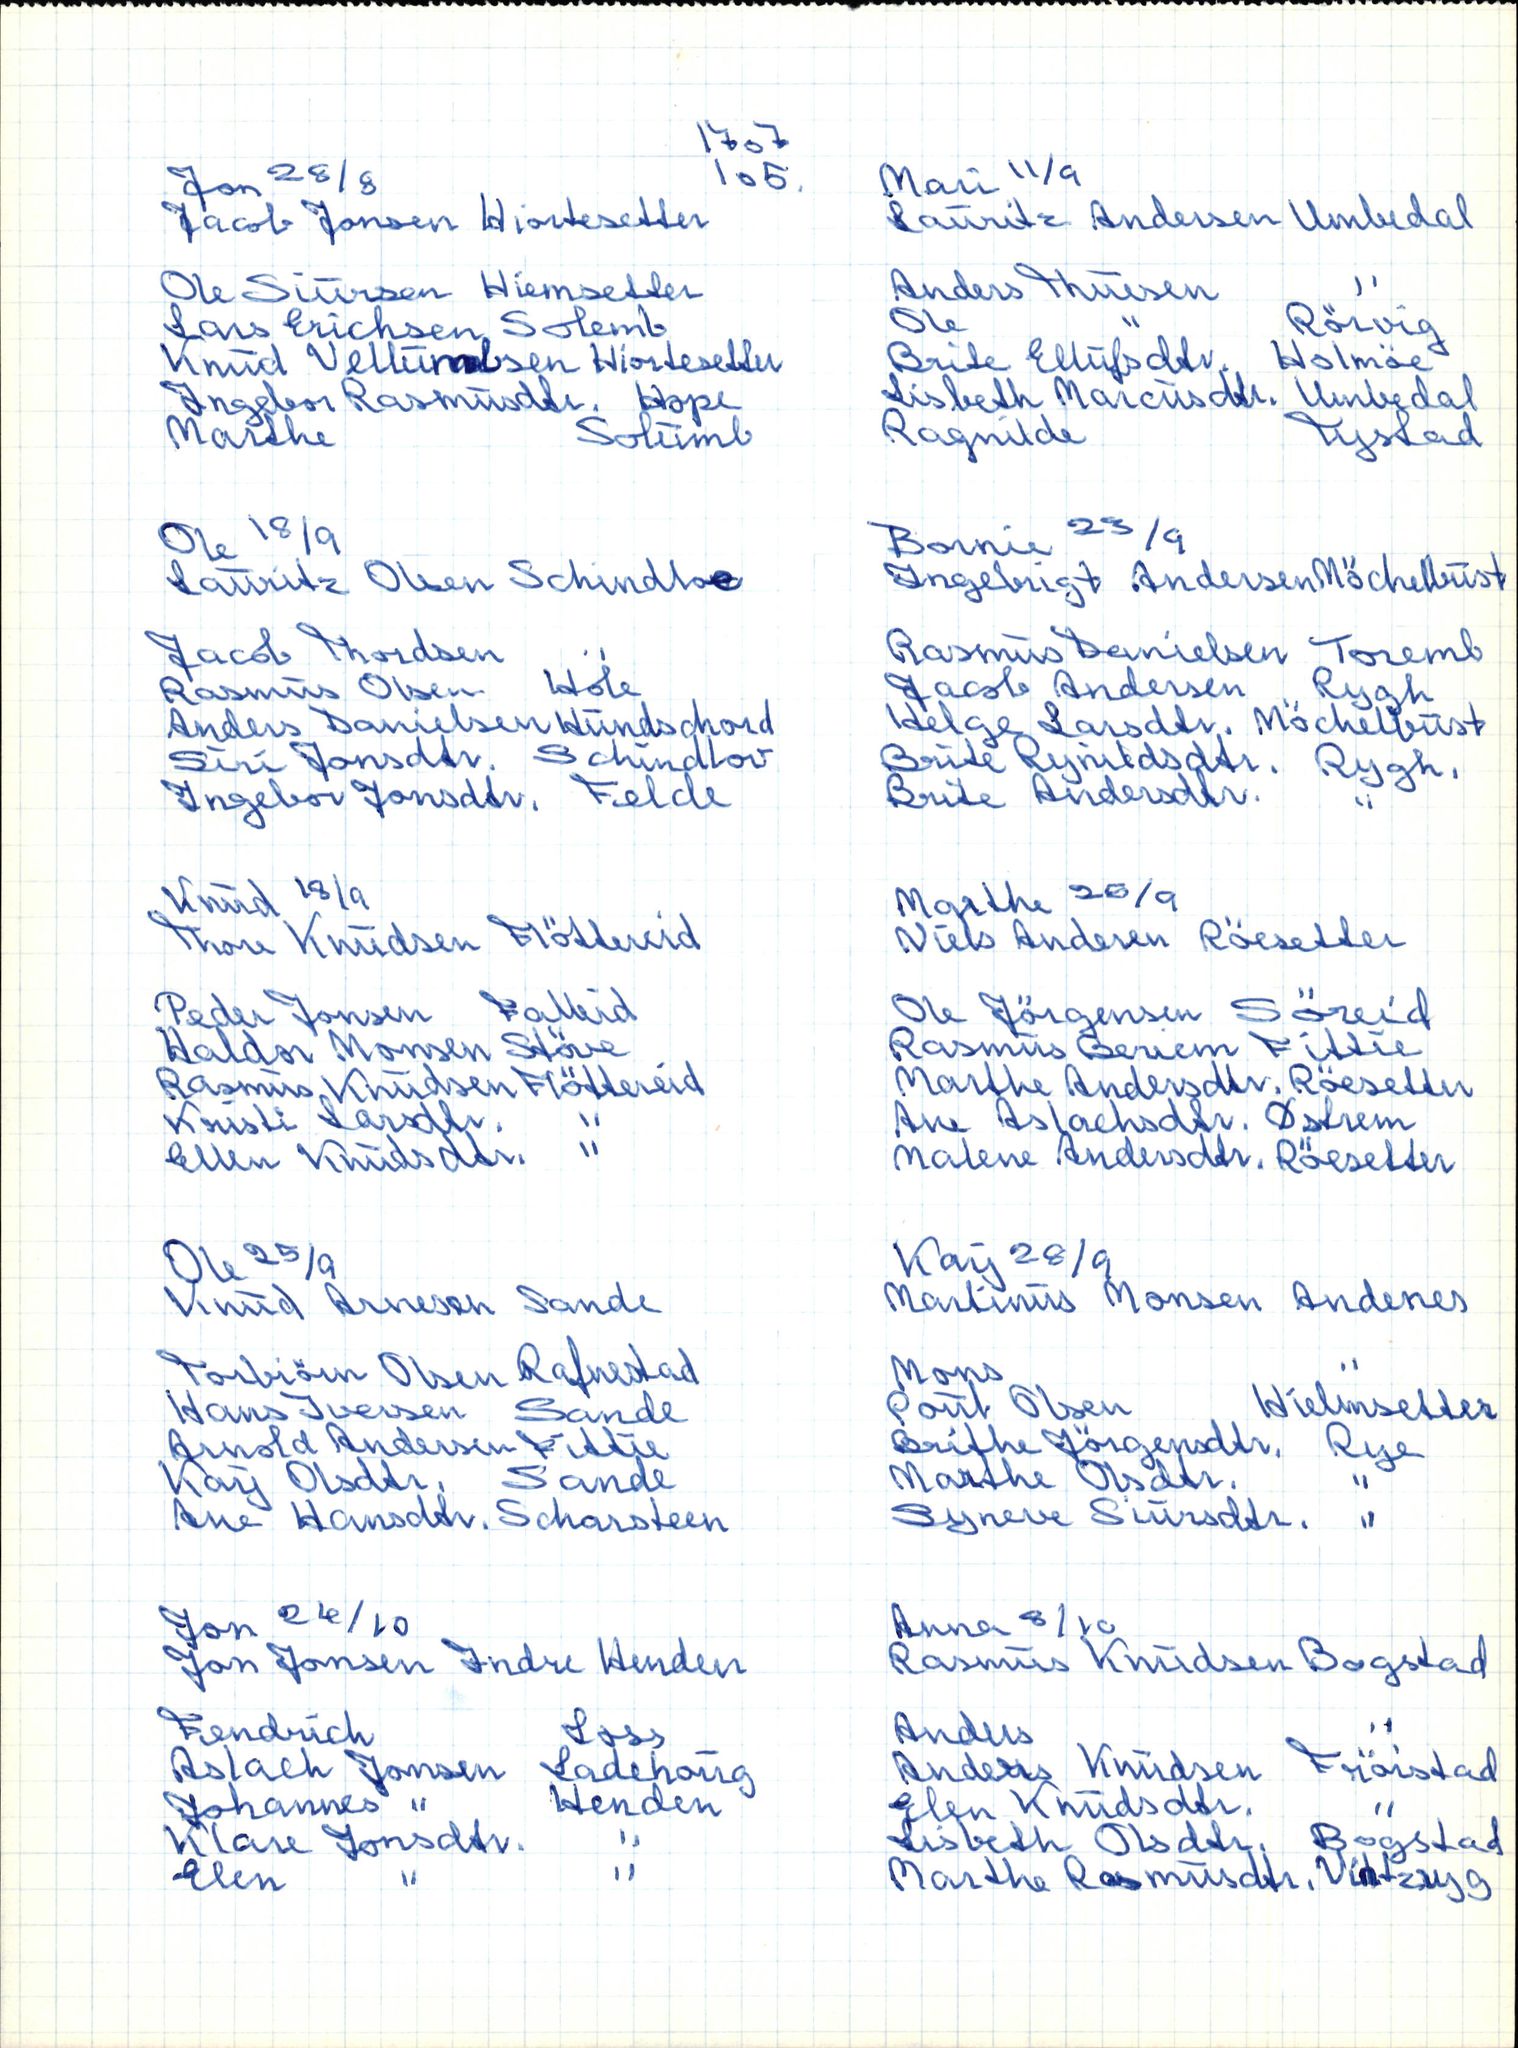 1707
105.
Jon 28/8
Jacob Jonsen Hiortesetter
Ole Siürsen Hiemsetter
Lars Erichsen Solemb
Knüd Vellümbsen Hiortesetter
Ingebor Rasmüsdtr. Hope
Marthe Solümb
Ole 18/9
Laüritz Olsen Schindloe
Jacob Thordsen "
Rasmüs Olsen Höle
Anders Danielsen Hündschord
Siri Jonsdtr. Schindlov
Ingebor Jonsdtr. Felde
Knüd 18/9
Thore Knüdsen Flöttereid
Peder Jonsen Falleid
Haldor Monsen Stöve
Rasmüs Knüdsen Flöttereid
Kristi Larsdtr. "
Ellen Knüdsdtr. "
Ole 25/9
Knüd Arnesen Sande
Torbiörn Olsen Rafnestad
Hans Iversen Sande
Arnold Andersen Fittie
Karj Olsdtr. Sande
Ane Hansdtr. Scharsteen
Jon 24/10
Jon Jonsen Indre Henden
Fendrich Loss
Aslach Jonsen Ladehoüg
Johannes " Henden
Klare Jonsdtr. "
Elen " "
Mari 11/9
Laüritz Andersen Umbedal
Anders Thüesen "
Ole " Rörvig
Brite Ellüfsdtr. Holmöe
Lisbeth Marcüsdtr. Umbedal
Ragnilde Tystad
Bornie 23/9
Ingebrigt Andersen Möchelbüst
Rasmüs Danielsen Toremb
Jacob Andersen Rygh
Helge Larsdtr. Möchelbüst
Brite Rynildsdtr. Rygh.
Brite Andersdtr. "
Marthe 26/9
Niels Anderen Röesetter
Ole Jörgensen Söreid
Rasmüs Beriem Fittie
Marthe Andersdtr. Röesetter
Ane Aslachsdtr. Østrem
Malene Andersdtr. Röesetter
Karj 28/9
Martinüs Monsen Andenes
Mons "
Poül Olsen Hielmsetter
Brithe Jörgensdtr. Rye
Marthe Olsdtr. "
Syneve Siürsdtr. "
Anna 8/10
Rasmüs Knüdsen Bogstad
Anders "
Anders Knüdsen Fröistad
Elen Knüdsdtr. "
Lisbeth Olsdtr. Bogstad
Marthe Rasmüsdtr.